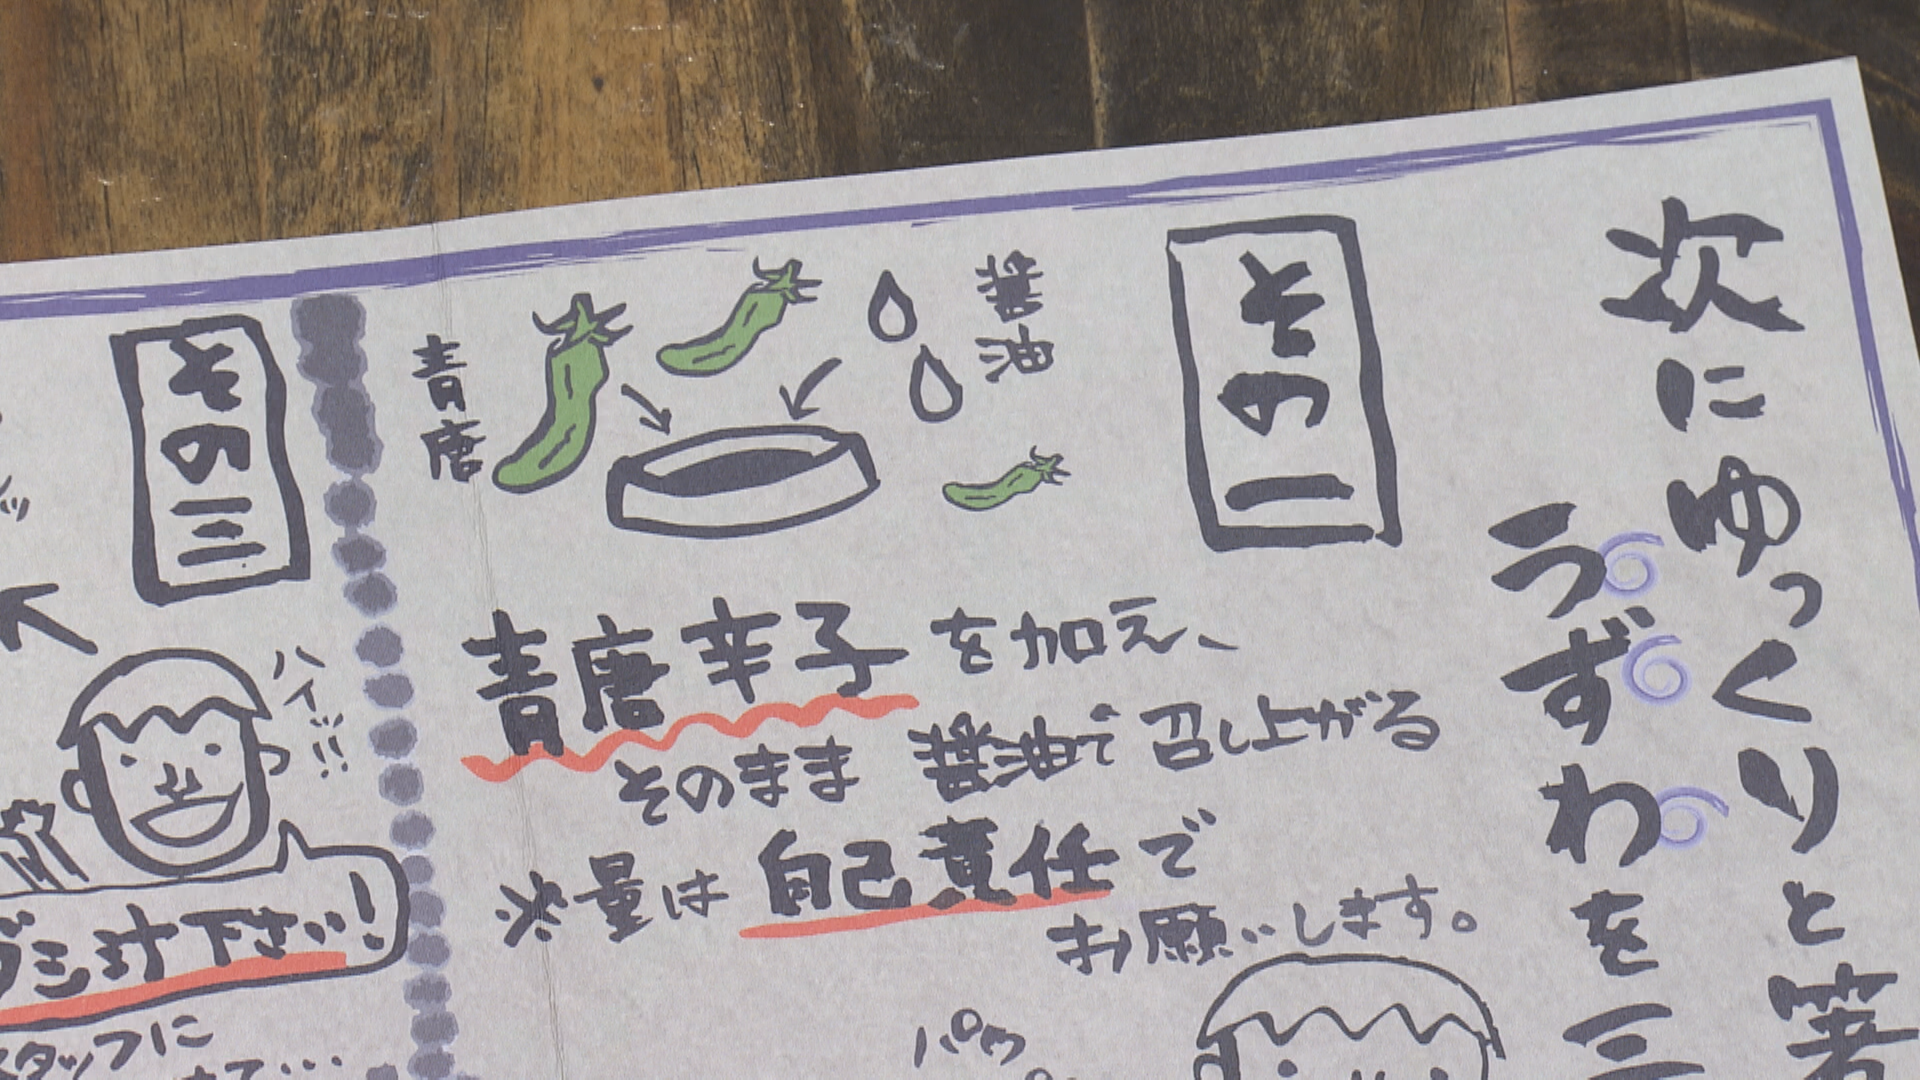 次にゆっくりと箸
うずわを三
その二
醤油
青唐
青唐辛子を加え、
そのまま醤油で召し上がる
※量は自己責任で
お願いします。
パウ
その三
ハイ!!
ダシ汁下さい!
スタッフに